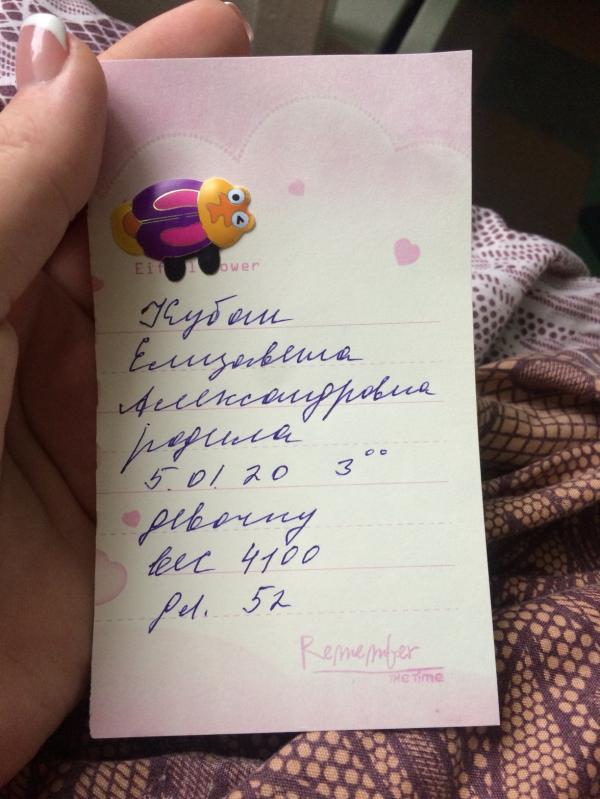 Eiffel Tower
Кубаш
Елизавета
Александровна
родила
5.01.20 3°°
девочку
вес 4100
дл. 52
Remember
THE TIME